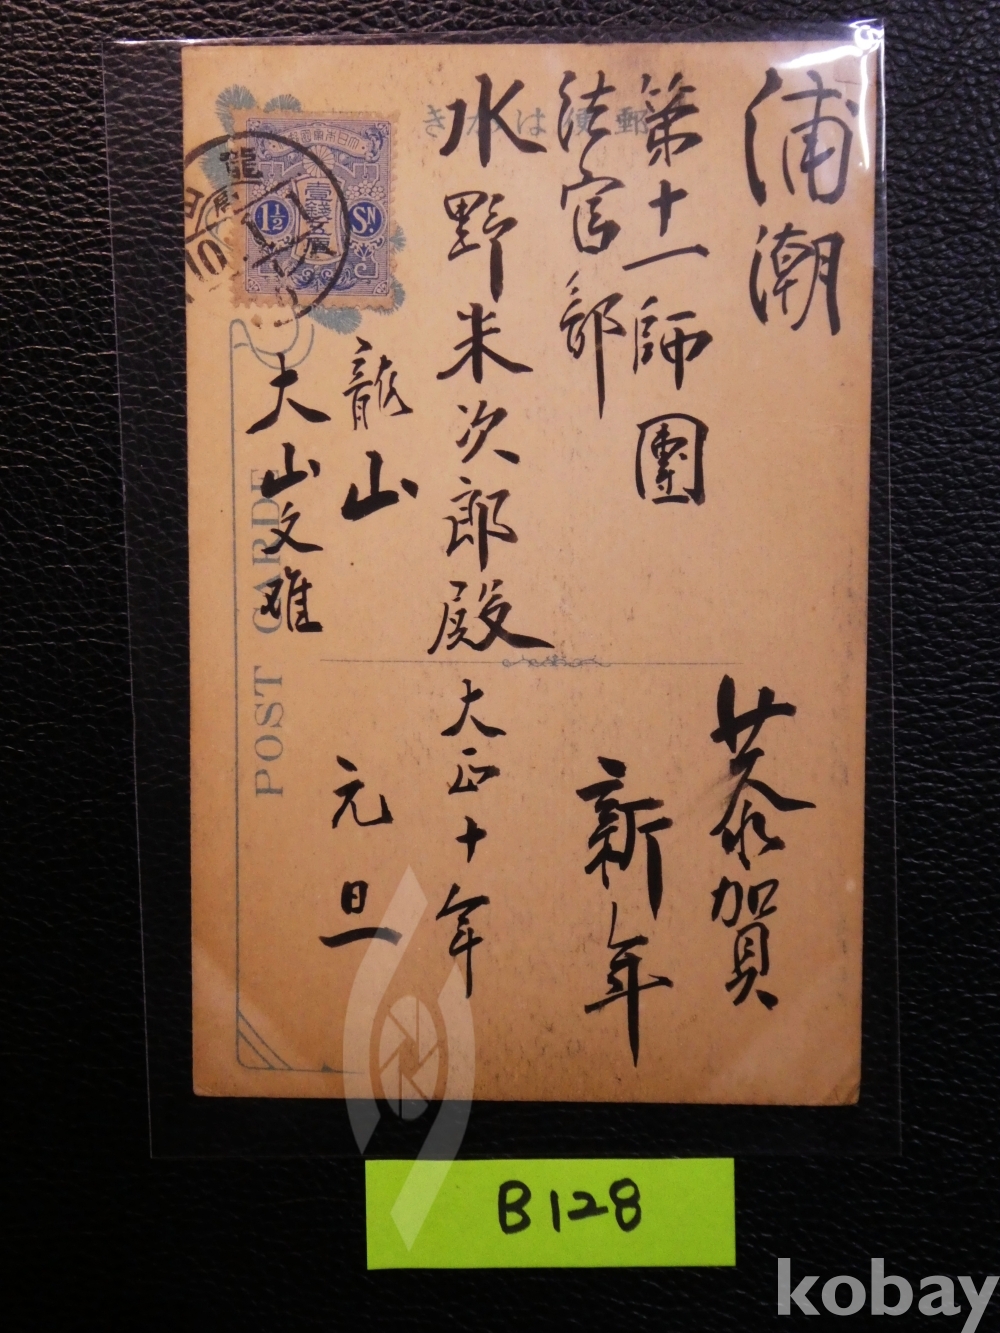 浦潮
第十一師團
法官部
水野米次郎殿
龍山
大山文雄
恭賀
新年
大正十年
元旦
きかは便郵
大日本帝國郵便
壹錢五厘
1½
SN
龍
10
POST CARD
B128
kobay